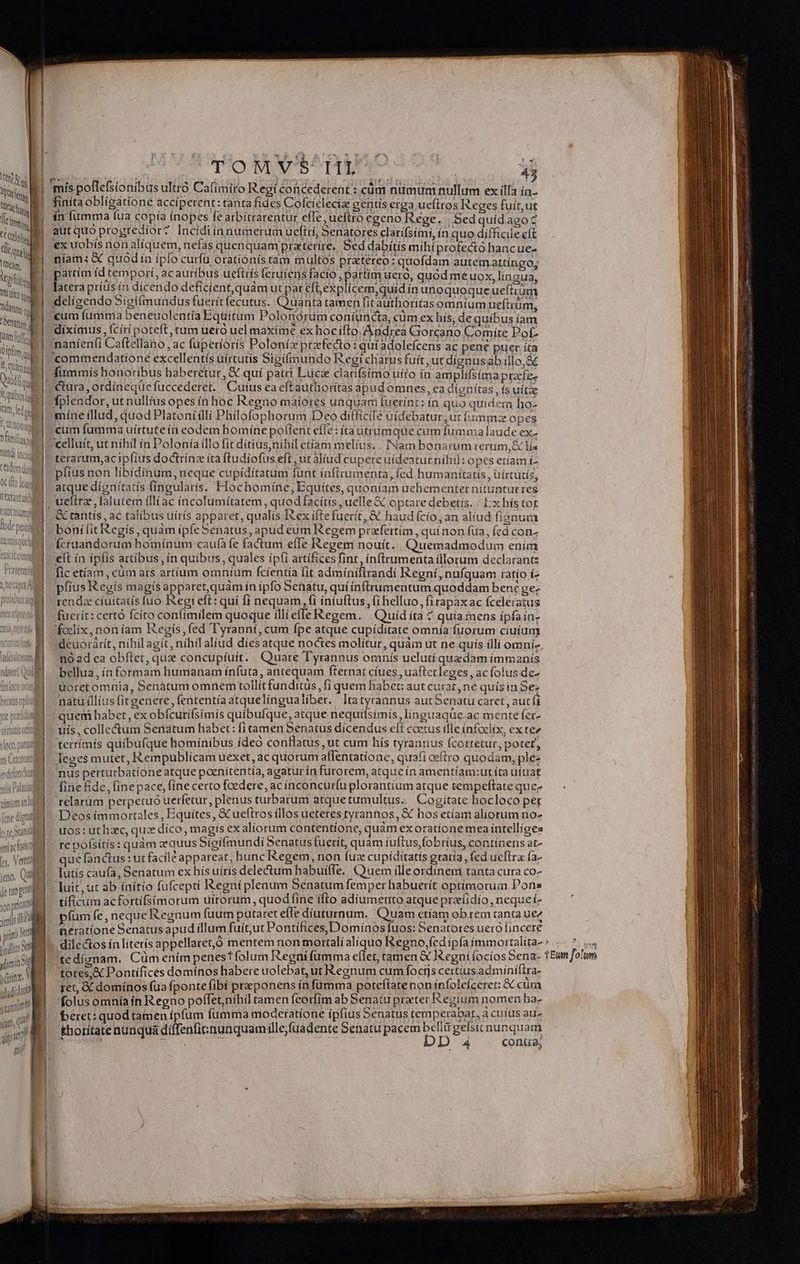 TOMVS III. 43
mis possessionibus ultrò Casimiro Regi concederent: cùm numum nullum ex illa in-
finita obligatione acciperent: tanta fides Coscieleciæ gentis erga uestros Reges fuit, ut
in summa sua copia inopes se arbitrarentur esse, uestro egeno Rege. Sed quid ago?
aut quò progredior? Incidi in numerum uestri, Senatores clarissimi, in quo difficile est
ex uobis non aliquem, nefas quenquam præterire. Sed dabitis mihi profectò hanc ue-
niam: & quòd in ipso cursu orationis tàm multos prætereo: quosdam autem attingo;
partim id tempori, ac auribus uestris seruiens facio, partim uerò, quòd me uox, lingua,
latera priùs in dicendo deficient, quàm ut par est, explicem, quid in unoquoque uestrùm
deligendo Sigismundus fuerit secutus. Quanta tamen sit authoritas omnium uestrûm,
cum summa beneuolentia Equitum Polonorum coniuncta, cùm ex his, de quibus iam
diximus, sciri potest, tum uerò uel maximè ex hoc isto Andrea Gorcano Comite Pos-
naniensi Castellano, ac superioris Poloniæ præfecto: qui adolescens ac penè puer, ita
commendatione excellentis uirtutis Sigismundo Regi charus fuit, ut dignus ab illo, &
summis honoribus haberetur, & qui patri Lucæ clarissimo uiro in amplissima præfe-
ctura, ordineq́ue succederet. Cuius ea est authoritas apud omnes, ea dignitas, is uitæ
splendor, ut nullius opes in hoc Regno maiores unquam fuerint: in quo quidem ho-
mine illud, quod Platoni illi Philosophorum Deo difficile uidebatur, ut summæ opes
cum summa uirtute in eodem homine possent esse: ita utrumque cum summa laude ex-
celluit, ut nihil in Polonia illo fit ditius, nihil etiam melius. Nam bonarum rerum, & iis
terarum, ac ipsius doctrinæ ita studiosus est, ut aliud cupere uideatur nihil: opes etiam i-
psius non libidinum, neque cupiditatum sunt instrumenta, sed humanitatis, uirtutis,
atque dignitatis singularis. Hoc homine, Equites, quoniam uehementer nituntur res
uestræ, salutem illi ac incolumitatem, quod facitis, uelle & optare debetis. Ex his tot
& tantis, ac talibus uiris apparet, qualis Rex iste fuerit, & haud scio, an aliud signum
boni sit Regis, quàm ipse Senatus, apud eum Regem præsertim, qui non sua, sed con-
seruandorum hominum causa se factum esse Regem nouit. Quemadmodum enim
est in ipsis artibus, in quibus, quales ipsi artifices sint, instrumenta illorum declarant:
sic etiam, cùm ars artium omnium scientia sit administrandi Regni, nusquam ratio i-
psius Regis magis apparet, quàm in ipso Senatu, qui instrumentum quoddam benè ge-
rendæ ciuitatis suo Regi est: qui si nequam, si iniustus, si helluo, si rapax ac sceleratus
fuerit: certò scito consimilem quoque illi esse Regem. Quid ita? quia mens ipsa in-
fœlix, non iam Regis, sed Tyranni, cum spe atque cupiditate omnia suorum ciuium
deuorârit, nihil agit, nihil aliud dies atque noctes molitur, quàm ut ne quis illi omni-
nò ad ea obstet, quæ concupiuit. Quare Tyrannus omnis ueluti quædam immanis
bellua, in formam humanam insuta, antequam sternat ciues, uastet leges, ac solus de-
uoret omnia, Senatum omnem tollit funditùs, si quem habet: aut curat, ne quis in Se-
natu illius sit genere, sententia atque lingua liber. Ita tyrannus aut Senatu caret, aut si
quem habet, ex obscurissimis quibusque, atque nequissimis, linguaq́ue ac mente ser-
uis, collectum Senatum habet: si tamen Senatus dicendus est cœtus ille infœlix, ex te-
terrimis quibusque hominibus ideò conflatus, ut cum his tyrannus scortetur, potet,
leges mutet, Rempublicam uexet, ac quorum assentatione, quasi œstro quodam, ple-
nus perturbatione atque pœnitentia, agatur in furorem, atque in amentiam: ut ita uiuat
sine fide, sine pace, sine certo fœdere, ac in concursu plorantium atque tempestate que-
relarum perpetuò uersetur, plenus turbarum atque tumultus. Cogitate hoc loco per
Deos immortales, Equites, & uestros illos ueteres tyrannos, & hos etiam aliorum no-
uos: ut hæc, quæ dico, magis ex aliorum contentione, quàm ex oratione mea intelligen
re possitis: quàm æquus Sigismundi Senatus fuerit, quàm iustus, sobrius, continens at-
que sanctus: ut facilè appareat, hunc Regem, non suæ cupiditatis gratia, sed uestræ sa-
lutis causa, Senatum ex his uiris delectum habuisse. Quem ille ordinem tanta cura co-
luit, ut ab initio suscepti Regni plenum Senatum semper habuerit optimorum Pon-
tificum ac fortissimorum uirorum, quod sine isto adiumento atque præsidio, neque i-
psum se, neque Regnum suum putaret esse diuturnum. Quam etiam ob rem tanta ue-
neratione Senatus apud illum fuit, ut Pontifices, Dominos suos: Senatores uerò sincerè
dilectos in literis appellaret, ò mentem non mortali aliquo Regno, sed ipsa immortalita-
te dignam. Cùm enim penes † solum Regni summa esset, tamen & Regni socios Sena- †Eum solum
tores, & Pontifices dominos habere uolebat, ut Regnum cum socijs certius administra-
ret, & dominos sua sponte sibi præponens in summa potestate non insolesceret: & cùm
solus omnia in Regno posset, nihil tamen seorsim ab Senatu præter Regium nomen ha-
beret: quod tamen ipsum summa moderatione ipsius Senatus temperabat, à cuius au-
thoritate nunquā dissensit: nunquam ille, suadente Senatu pacem bellū gessit: nunquam
DD 4 contra,